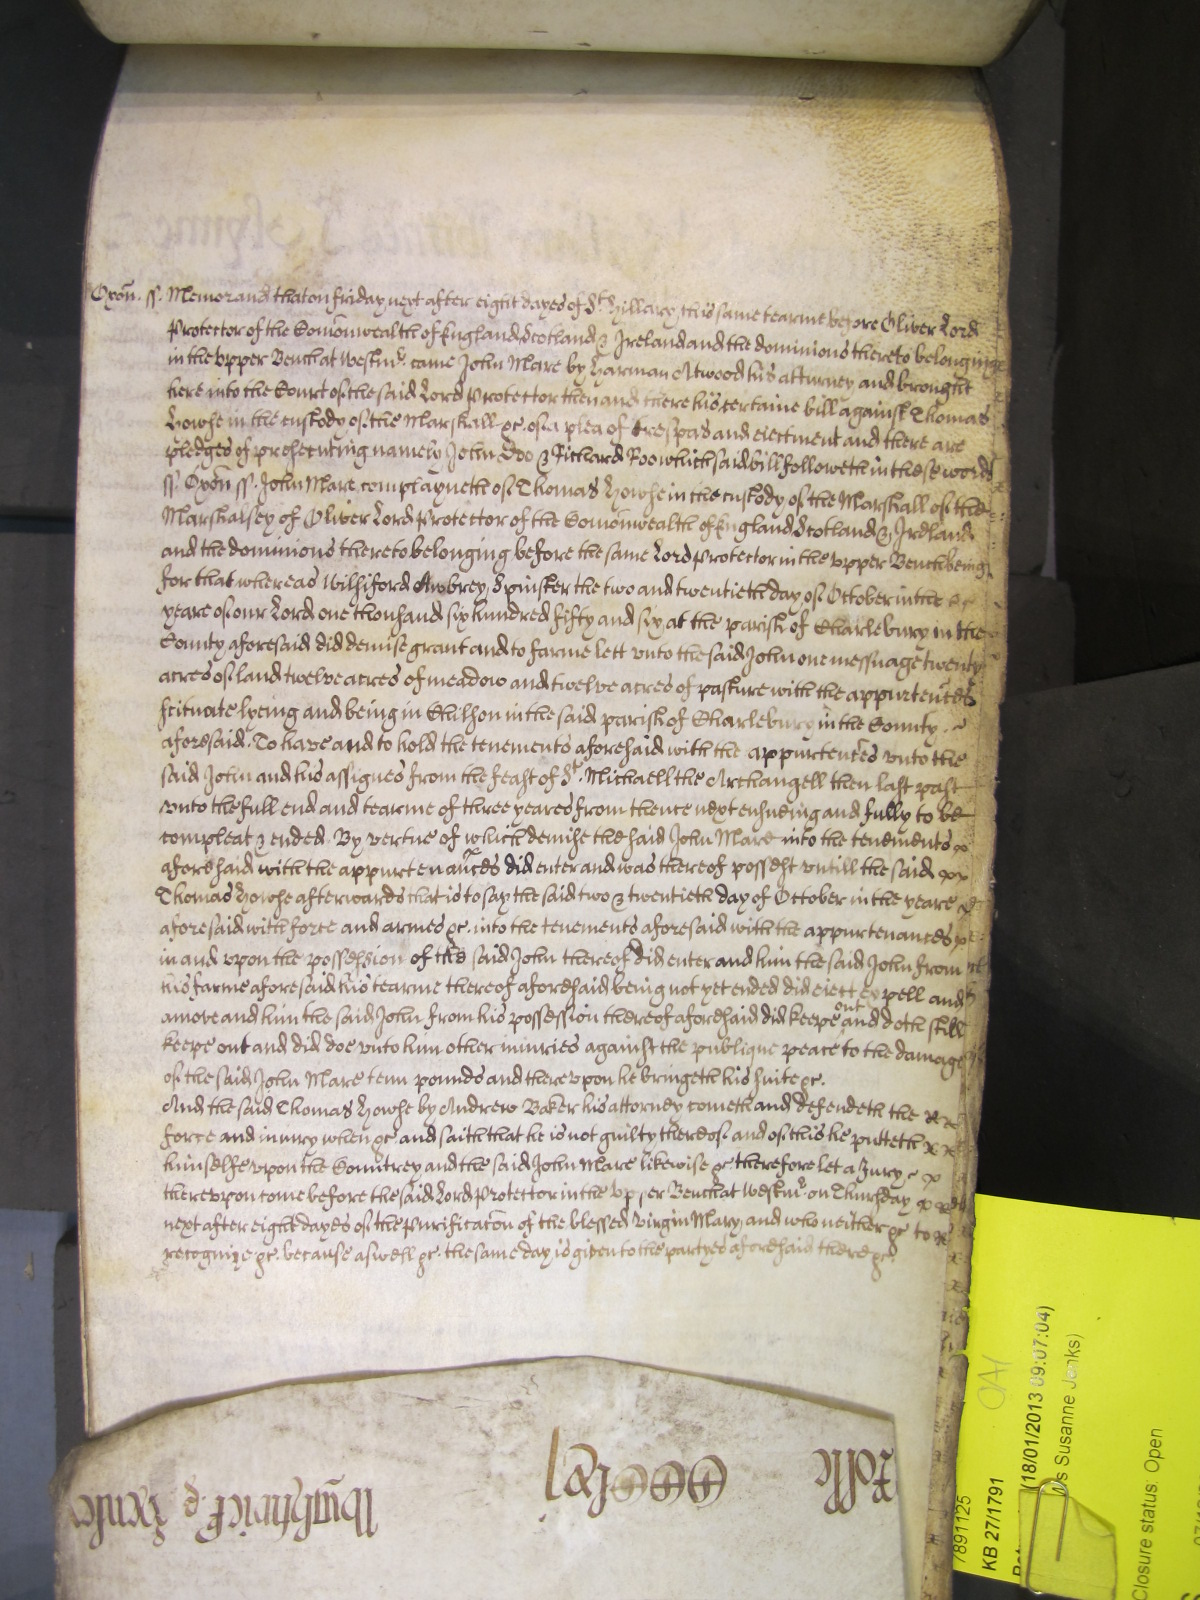 Oxoñ. ss. Memorand that on Friday next after eight dayes of St. Hillary this same tearme before Oliver Lord
Protector of the Comonwealth of England Scotland & Ireland and the dominions thereto belonging
in the vpper Bench at Westmr. came John Mare by Harman Atwood his atturney and brought
here into the Court of the said Lord Protector then and there his certaine bill against Thomas
Howse in the custody of the Marshall &c. of a plea of trespas and eiectment and there are
pledges of prosecuting namely John Doo & Richard Roo which said bill followeth in these words
ss. Oxoñ ss. John Mare complayneth of Thomas Howse in the custody of the Marshall of the
Marshalsey of Oliver Lord Protector of the Comonwealth of England Scotland & Ireland
and the dominions thereto belonging before the same Lord Protector in the vpper Bench being
for that whereas Wilsiford Awbrey Spinster the two and twentieth day of October in the
yeare of our Lord one thousand six hundred fifty and six at the parish of Charlebury in the
County aforesaid did demise grant and to farme lett vnto the said John one messuage twenty
acres of land twelve acres of meadow and twelve acres of pasture with the appurtenc̃es
scituate lyeing and being in Chilson in the said parish of Charlebury in the County
aforesaid. To have and to hold the tenements aforesaid with the appurtenc̃es vnto the
said John and his assignes from the feast of St. Michaell the Archangell then last past
vnto the full end and tearme of three yeares from thence next ensueing and fully to be
compleat & ended. By vertue of which demise the said John Mare into the tenements
aforesaid with the appurtenances did enter and was thereof possest vntill the said
Thomas Howse afterwards that is to say the said two & twentieth day of October in the yeare
aforesaid with force and armes &c. into the tenements aforesaid with the appurtenances
in and vpon the possession of the said John thereof did enter and him the said John from
his farme aforesaid his tearme thereof aforesaid being not yet ended did eiect expell and
amove and him the said John from his possession thereof aforesaid did keepe out and doth still
keepe out and did doe vnto him other iniuries against the publique peace to the damage
of the said John Mare tenn pounds and therevpon he bringeth his suite &c.
And the said Thomas Howse by Andrew Baker his attorney cometh and defendeth the
force and iniury when &c. and saith that he is not guilty thereof and of this he putteth
himselfe vpon the Countrey and the said John Mare likewise &c. therefore let a Jury
therevpon come before the said Lord Protector in the vpper Bench at Westmr. on Thursday
next after eight dayes of the Purificacõn of the blessed Virgin Mary and who neither &c. to
recognize &c. because aswell &c. the same day is given to the partyes aforesaid there &c.
Rolle
7891125
KB 27/1791
(18/01/2013 09:07:04)
Susanne Jenks)
Closure status: Open